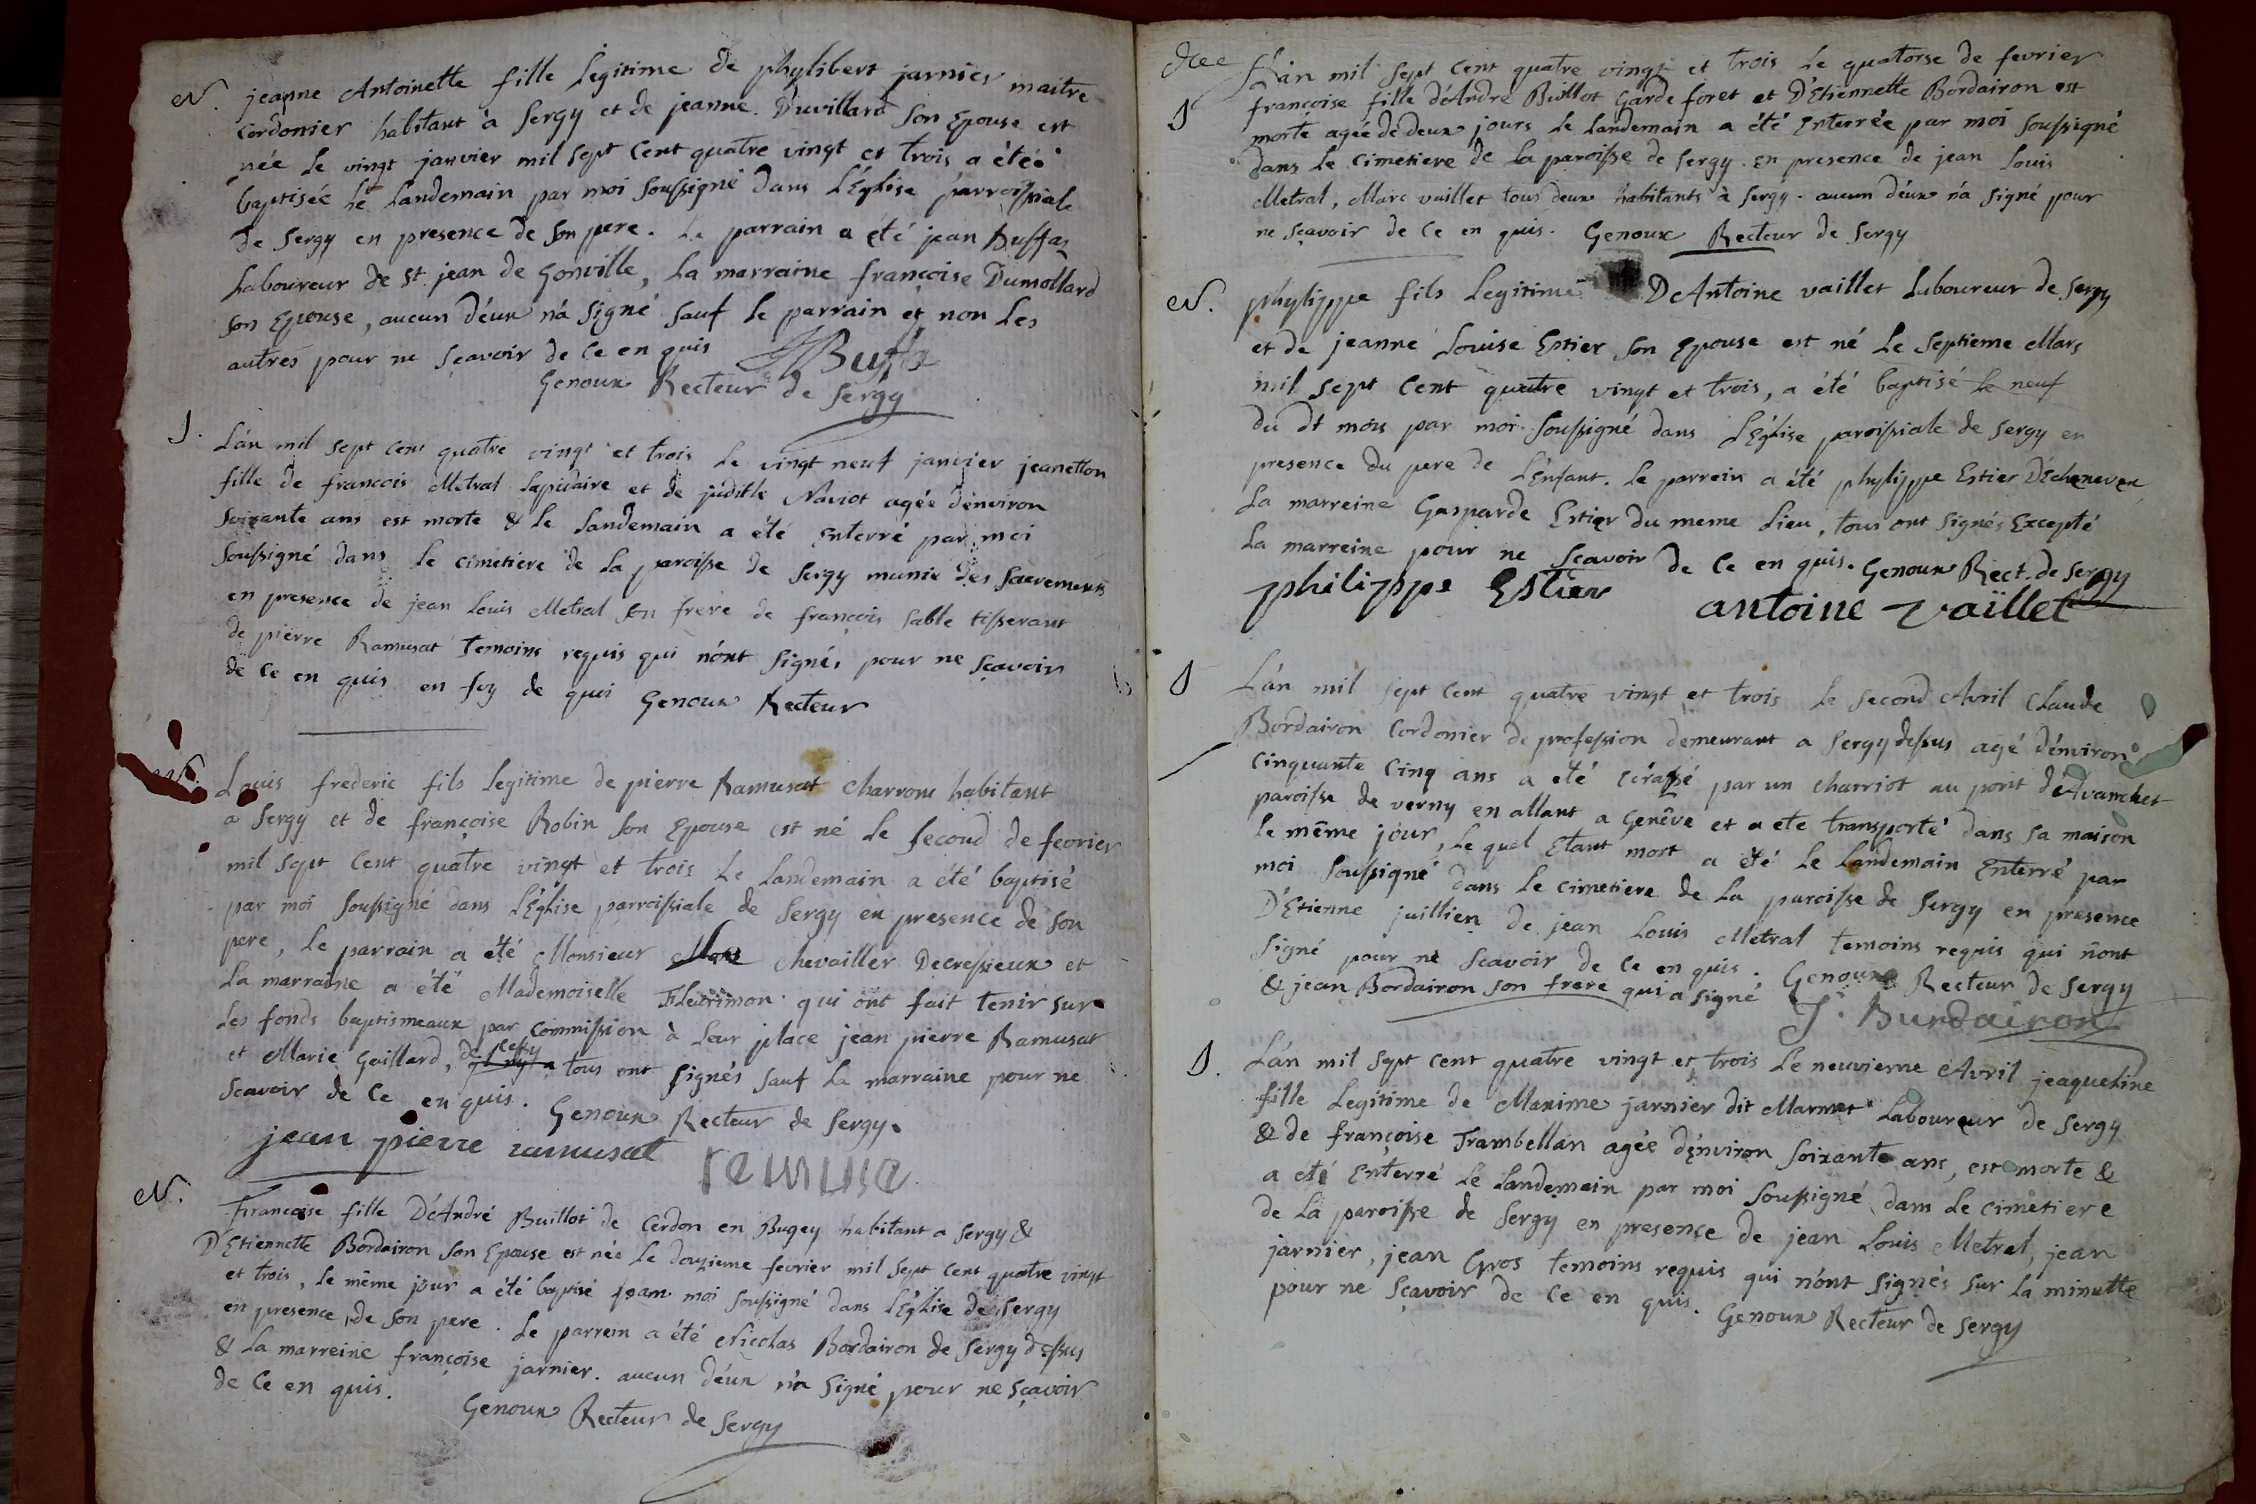 N. jeanne Antoinette fille Legitime de phylibert jarnier maitre
cordonier habitant à Sergy et de jeanne Duvillard Son Epouse est
née le vingt janvier mil sept Cent quatre vingt et trois a été
baptisée le Landemain par moi Soussigné dans L'Eglise parroissiale
de Sergy en presence de son pere. Le parrain a été jean Buffaz
Laboureur de St jean de Gonville, La marraine françoise Dumollard
son Epouse, aucun d'eux n'a Signé Sauf le parrain et non Les
autres pour ne Sçavoir de Ce en quis JBuffaz
Genoux Recteur de Sergy
S. L'an mil Sept Cent quatre vingt et trois Le vingt neuf janvier jeanetton
fille de francois Metral Lapidaire et de judith Naviot agée d'environ
Soixante ans est morte & le Landemain a été Enterré par moi
Soussigné dans le cimetiere de La paroisse de Sergy munie des Sacremens
en presence de jean Louis Metral son frere de françois Sable tisserant
de pierre Ramusat Temoins requis qui n'ont Signés pour ne Sçavoir
de Ce en quis en foy de quoi Genoux Recteur
N. Louis frederic fils Legitime de pierre Ramusat Charron habitant
a Sergy et de françoise Robin Son Epouse est né Le Second de fevrier
mil sept Cent quatre vingt et trois Le Landemain a été baptisé
par moi Soussigné dans L'Eglise parroissiale de Sergy en presence de son
pere, Le parrain a été Monsieur chevailler Decressieux et
La marraine a été Mademoiselle qui ont fait tenir sur
Les fonds baptismeaux par Commission à Leur place jean pierre Ramusat
et Marie Gaillard, de tous ont signés Sauf La marraine pour ne
Scavoir de Ce en quis. Genoux Recteur de Sergy.
jean pierre ramusat remusa
N. Françoise fille D'André Buillot de Cerdon en Bugey habitant a Sergy &
D'Etiennette Bordairon Son Epouse est née Le douzieme fevrier mil Sept Cent quatre vingt
et trois, le même jour a été baptisé par moi Soussigné dans L'Eglise de Sergy
en presence de Son pere. Le parrein a été Nicolas Bordairon de Sergy dessus
& La marreine françoise jarnier. aucun d'eux n'a Signé pour ne Sçavoir
de Ce en quis. Genoux Recteur de Sergy
S L'an mil Sept Cent quatre vingt et trois Le quatorse de fevrier
françoise fille d'Andre Buillot Garde foret et D'Etiennette Bordairon est
morte agée de deux jours le Landemain a été Enterrée par moi Soussigné
dans le Cimetiere de La paroisse de Sergy en presence de jean Louis
Metral, Marc vaillet tous deux habitants à Sergy. aucun d'eux n'a Signé pour
ne Sçavoir de Ce en quis. Genoux Recteur de Sergy
N. phylippe fils Legitime De Antoine vaillet Laboureur de Sergy
et de jeanne Louise Estier Son Epouse est né Le Septieme Mars
mil Sept Cent quatre vingt et trois, a été baptisé le neuf
du dt mois par moi Soussigné dans L'Eglise paroissiale de Sergy en
presence du pere de L'Enfant. le parrein a été phylippe Estier D'Echenevex
La marreine Gasparde Estier du meme Lieu, tous ont Signés Excepté
La marreine pour ne Sçavoir de Ce en quis. Genoux Rect. de Sergy
philippe Estier antoine vaillet
S L'an mil Sept Cent quatre vingt et trois Le Second Avril Claude
Bordairon Cordonier de profession demeurant a Sergy dessus agé d'environ
Cinquante Cinq ans a été écrassé par un charriot au pont d'Avanchet
paroisse de verny en allant a Genêve et a ete transporté dans sa maison
Le même jour, Le quel Etant mort a été Le Landemain Enterré par
moi Soussigné dans Le Cimetiere de La paroisse de Sergy en presence
D'Etienne juillien de jean Louis Metral temoins requis qui n'ont
Signé pour ne Scavoir de Ce en quis. Genoux Recteur de Sergy
& jean Bordairon son frere qui a Signé J. Burdairon
S. L'an mil Sept Cent quatre vingt et trois Le neuvieme Avril jeaqueline
fille Legitime de Maxime jarnier dit Marmet Laboureur de Sergy
& de françoise Trambellan agée d'environ Soixante ans, est morte &
a été Enterré Le Landemain par moi Soussigné dans Le Cimetiere
de La paroisse de Sergy en presence de jean Louis Metral, jean
jarnier, jean Gros temoins requis qui n'ont Signés Sur La minutte
pour ne Sçavoir de Ce en quis. Genoux Recteur de Sergy